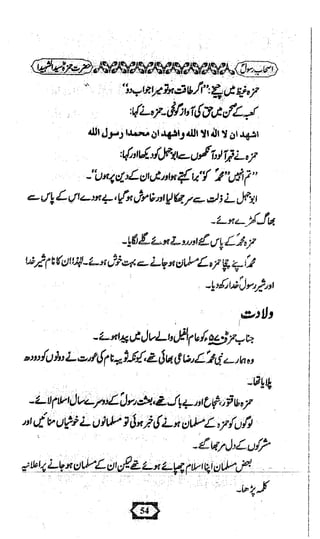 اصحاب رسولؐ
حضرت حمزہؓ سید الشہداء
حمزہ غیظ میں چیخے: "اگر طاقت ہو تو میرا جواب دو"
کعبہ کے صحن میں حق کی آواز گونجی۔ حمزہ نے کہا:
اشهد ان لا اله الا الله واشهد ان محمدا رسول الله
حمزہ نے قہر آلود آنکھوں سے ابو جہل کو دیکھا اور کہا:
"تم انہیں" محمدؐ کو" برا کہتے ہو اور میں ان کے دین پر ہوں"۔
ابو جہل نے ذلت سے سر جھکا لیا اور خاموش ہو گیا، بے ہودے اس کے پاس سے
بھاگ کھڑے ہوئے۔
حمزہ محمدؐ کے پاس گئے اور روتے ہوئے گلے لگایا۔
محمدؐ اپنے چچا حمزہ کے مسلمان ہو جانے سے بہت خوش ہوئے۔ لہٰذا ان کا نام شیر خدا
اور شیر رسولؐ خدا رکھ دیا۔
ولادت
جناب حمزہ ۵۷۰ء کو عام الفیل والے سال میں پیدا ہوئے۔
وہ ہمارے نبی محمدؐ کے رضاعی بھائی تھے، کیونکہ ثوبیہ نام کی عورت نے دونوں کو دودھ
پلایا تھا۔
حمزہ طاقتور، شجاع اور بے باک تھے، بعثت رسولؐ کے دوسرے سال اسلام لائے۔
لوگوں کو حمزہ کے مسلمان ہونے کی خبر ہوئی تو مسلمانوں نے خوشیاں منائیں اور
مشرکوں کے دل مرجھا گئے۔
بعض مسلمان اپنا اسلام چھپائے ہوئے تھے لیکن ان کے مسلمان ہو جانے پر اعلانیہ
کلمہ پڑھا۔
54